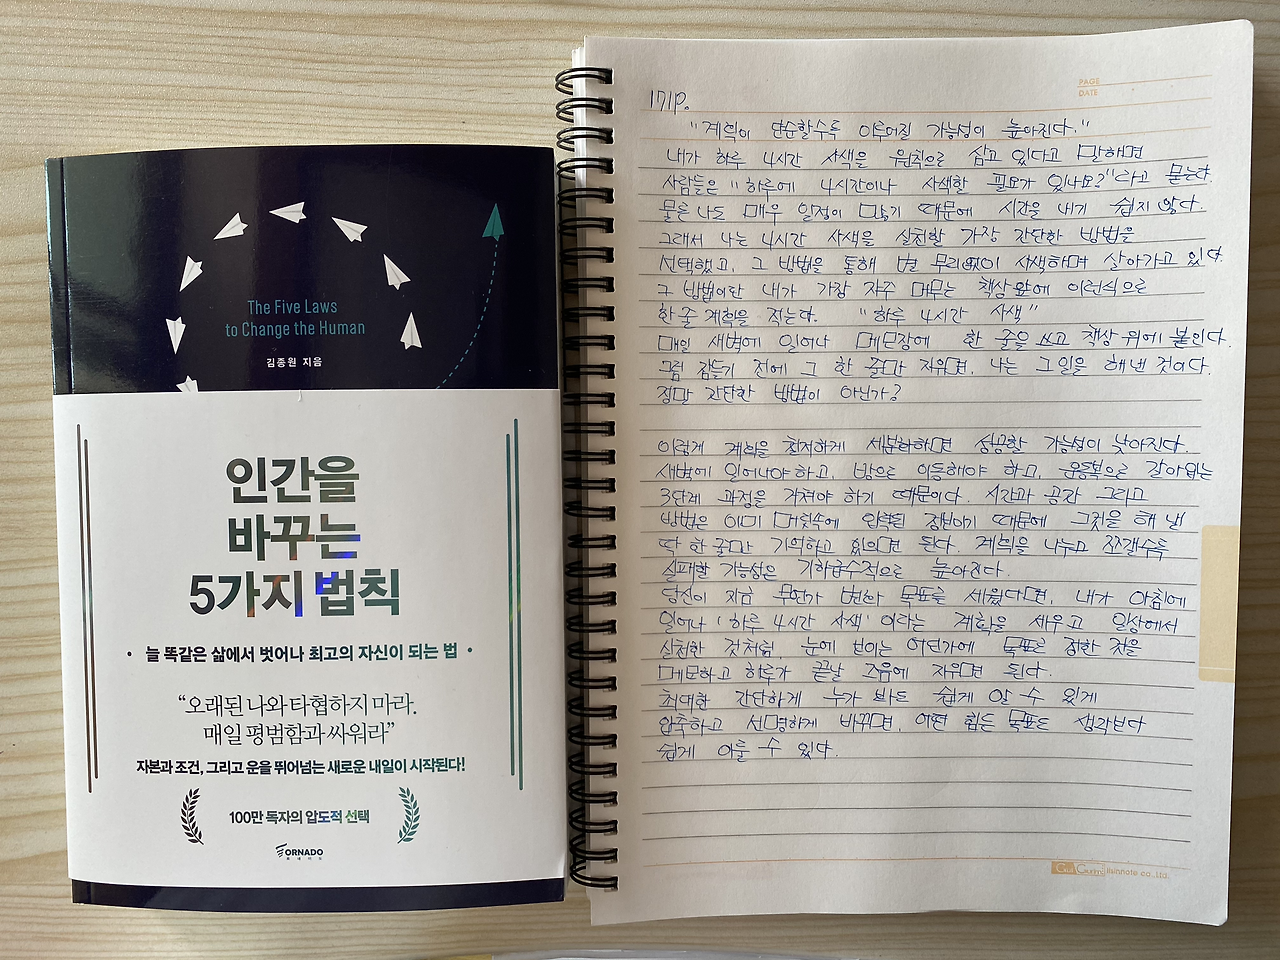 The Five Laws
to Change the Human
김종원 지음
인간을
바꾸는
5가지 법칙
• 늘 똑같은 삶에서 벗어나 최고의 자신이 되는 법 •
“오래된 나와 타협하지 마라.
매일 평범함과 싸워라”
자본과 조건, 그리고 운을 뛰어넘는 새로운 내일이 시작된다!
100만 독자의 압도적 선택
TORNADO
토네이도
PAGE
DATE
171p.
"계획이 단순할수록 이루어질 가능성이 높아진다."
내가 하루 4시간 사색을 원칙으로 삼고 있다고 말하면
사람들은 "하루에 4시간이나 사색할 필요가 있나요?"라고 묻는다.
물론 나도 매우 일정이 많기 때문에 시간을 내기 쉽지 않다.
그래서 나는 4시간 사색을 실천할 가장 간단한 방법을
선택했고, 그 방법을 통해 별 무리없이 사색하며 살아가고 있다.
그 방법이란 내가 가장 자주 머무는 책상앞에 이런식으로
한 줄 계획을 적는다. "하루 4시간 사색"
매일 새벽에 일어나 메모장에 한 줄을 쓰고 책상 위에 붙인다.
그럼 잠들기 전에 그 한 줄만 지우면, 나는 그 일을 해낸 것이다.
정말 간단한 방법이 아닌가?
이렇게 계획을 철저하게 세분화하면 성공할 가능성이 낮아진다.
새벽에 일어나야 하고, 방으로 이동해야 하고, 운동복으로 갈아입는
3단계 과정을 거쳐야 하기 때문이다. 시간과 공간 그리고
방법은 이미 머릿속에 입력된 정보이기 때문에 그것을 해 낼
딱 한 줄만 기억하고 있으면 된다. 계획을 나누고 쪼갤수록
실패할 가능성은 기하급수적으로 높아진다.
당신이 지금 무언가 변화 목표를 세웠다면, 내가 아침에
일어나 '하루 4시간 사색' 이라는 계획을 세우고 일상에서
실천한 것처럼, 눈에 보이는 어딘가에 목표로 정한 것을
메모하고 하루가 끝날 즈음에 지우면 된다.
최대한 간단하게 누가 봐도 쉽게 알 수 있게
압축하고 선명하게 바꾸면, 어떤 힘든 목표도 생각보다
쉽게 이룰 수 있다.
ilsinnote co.,Ltd.